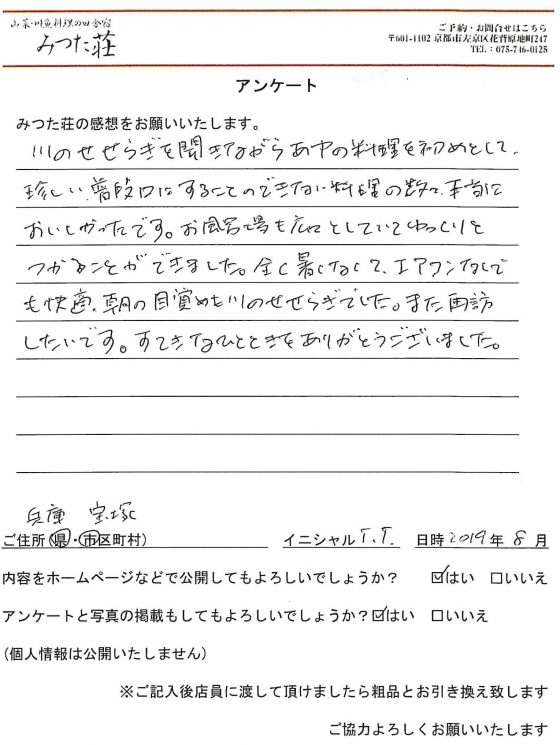 山菜・川魚料理の田舎宿
みつた荘
ご予約・お問合せはこちら
〒601-1102 京都市左京区花背原地町247
TEL：075-746-0125
アンケート
みつた荘の感想をお願いいたします。
川のせせらぎを聞きながらあゆの料理を初めとして、
珍しい、普段口にすることのできない料理の数々、本当に
おいしかったです。お風呂場も広々としていてゆっくりと
つかることができました。全く暑くなくて、エアコンなしで
も快適、朝の目覚めも川のせせらぎでした。また再訪
したいです。すてきなひとときをありがとうございました。
兵庫 宝塚
ご住所(県・市区町村) イニシャル T.T. 日時 2019年 8月
内容をホームページなどで公開してもよろしいでしょうか？ ☑はい □いいえ
アンケートと写真の掲載もしてもよろしいでしょうか？☑はい □いいえ
(個人情報は公開いたしません)
※ご記入後店員に渡して頂けましたら粗品とお引き換え致します
ご協力よろしくお願いいたします